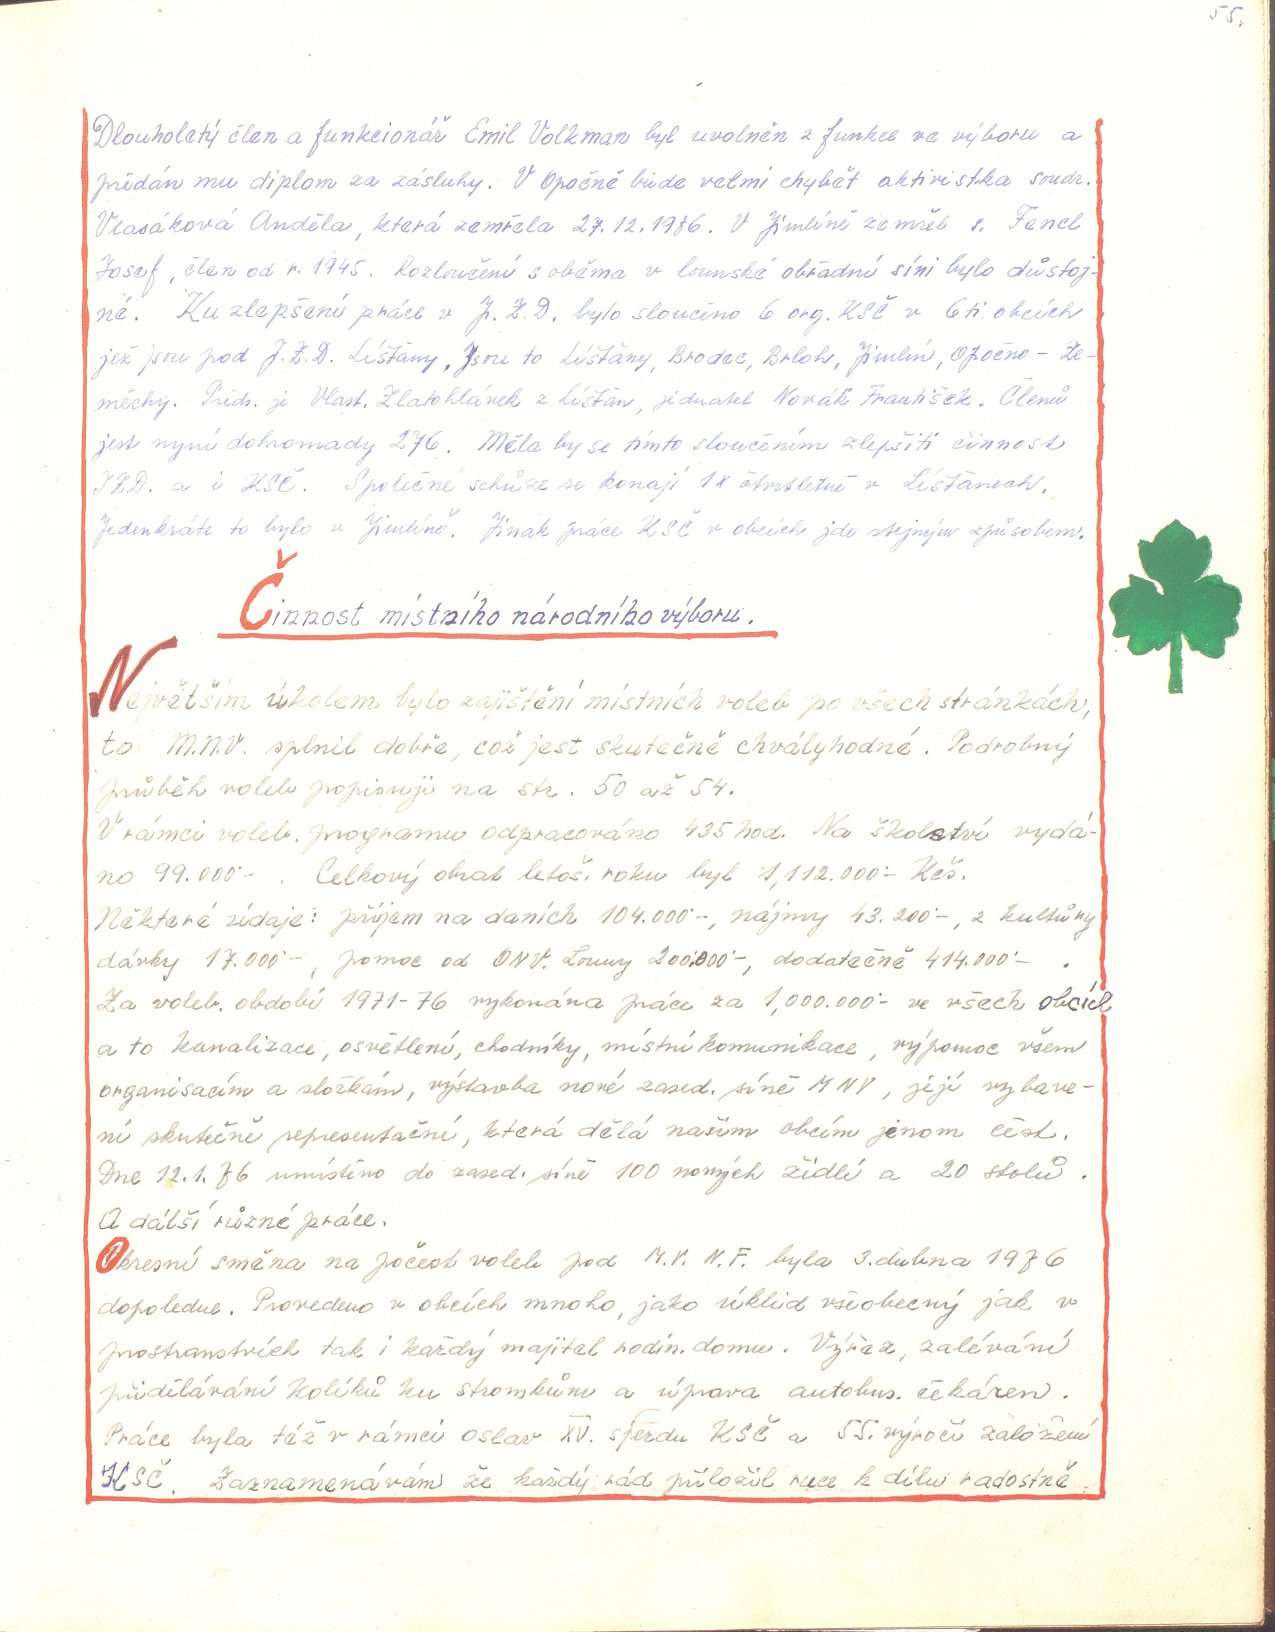 55.
Dlouholetý člen a funkcionář Emil Volkman byl uvolněn z funkce ve výboru a
předán mu diplom za zásluhy. V Opočně bude velmi chybět aktivistka soudr.
Vlasáková Anděla, která zemřela 27.12.1976. V Jimlíně zemřel s. Fencl
Josef, člen od r. 1945. Rozloučení s oběma v lounské obřadní síni bylo důstoj-
né. Ku zlepšení práce v J.Z.D. bylo sloučeno 6 org. KSČ v 6ti obcích
jež jsou pod J.Z.D. Líšťany, Jsou to Líšťany, Brodec, Brloh, Jimlín, Opočno - Ze-
měchy. Předs. je Vlast. Zlatohlávek z Líšťan, jednatel Novák František. Členů
jest nyní dohromady 276. Měla by se tímto sloučením zlepšiti činnost
JZD. a i KSČ. Společné schůze se konají 1x čtvrtletně v Líšťanech.
Jedenkráte to bylo v Jimlíně. Jinak práce KSČ v obcích jde stejným způsobem.
Činnost místního národního výboru.
Největším úkolem bylo zajištění místních voleb po všech stránkách,
to M.N.V. splnil dobře, což jest skutečně chvályhodné. Podrobný
průběh voleb popisuji na str. 50 až 54.
V rámci voleb. programu odpracováno 435 hod. Na školství vydá-
no 99.000·- . Celkový obrat letoš. roku byl 1,112.000·- Kčs.
Některé údaje: příjem na daních 104.000·-, nájmy 43.200·-, z kultůry
dávky 17.000·-, pomoc od ONV. Louny 200.000·-, dodatečně 414.000·- .
Za voleb. období 1971-76 vykonána práce za 1,000.000·- ve všech obcích
a to kanalizace, osvětlení, chodníky, místní komunikace, výpomoc všem
organisacím a složkám, výstavba nové zased. síně MNV, její vybave-
ní skutečně representační, která dělá našim obcím jenom čest.
Dne 12.1.76 umístěno do zased. síně 100 nových židlí a 20 stolů.
A dálší různé práce.
Okresní směna na počest voleb pod M.V. N.F. byla 3. dubna 1976
dopoledne. Provedeno v obcích mnoho, jako úklid všeobecný jak v
prostranstvích tak i každý majitel rodin. domu. Výřez, zalévání
přidělávání kolíků ku stromkům a úprava autobus. čekáren.
Práce byla též v rámci oslav XV. sjezdu KSČ a 55. výročí založení
KSČ. Zaznamenávám že každý rád přiložil ruce k dílu radostně.